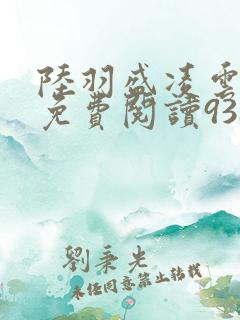 陸羽盛凌雲
免費閱讀93
劉秉光
未經同意禁止轉載